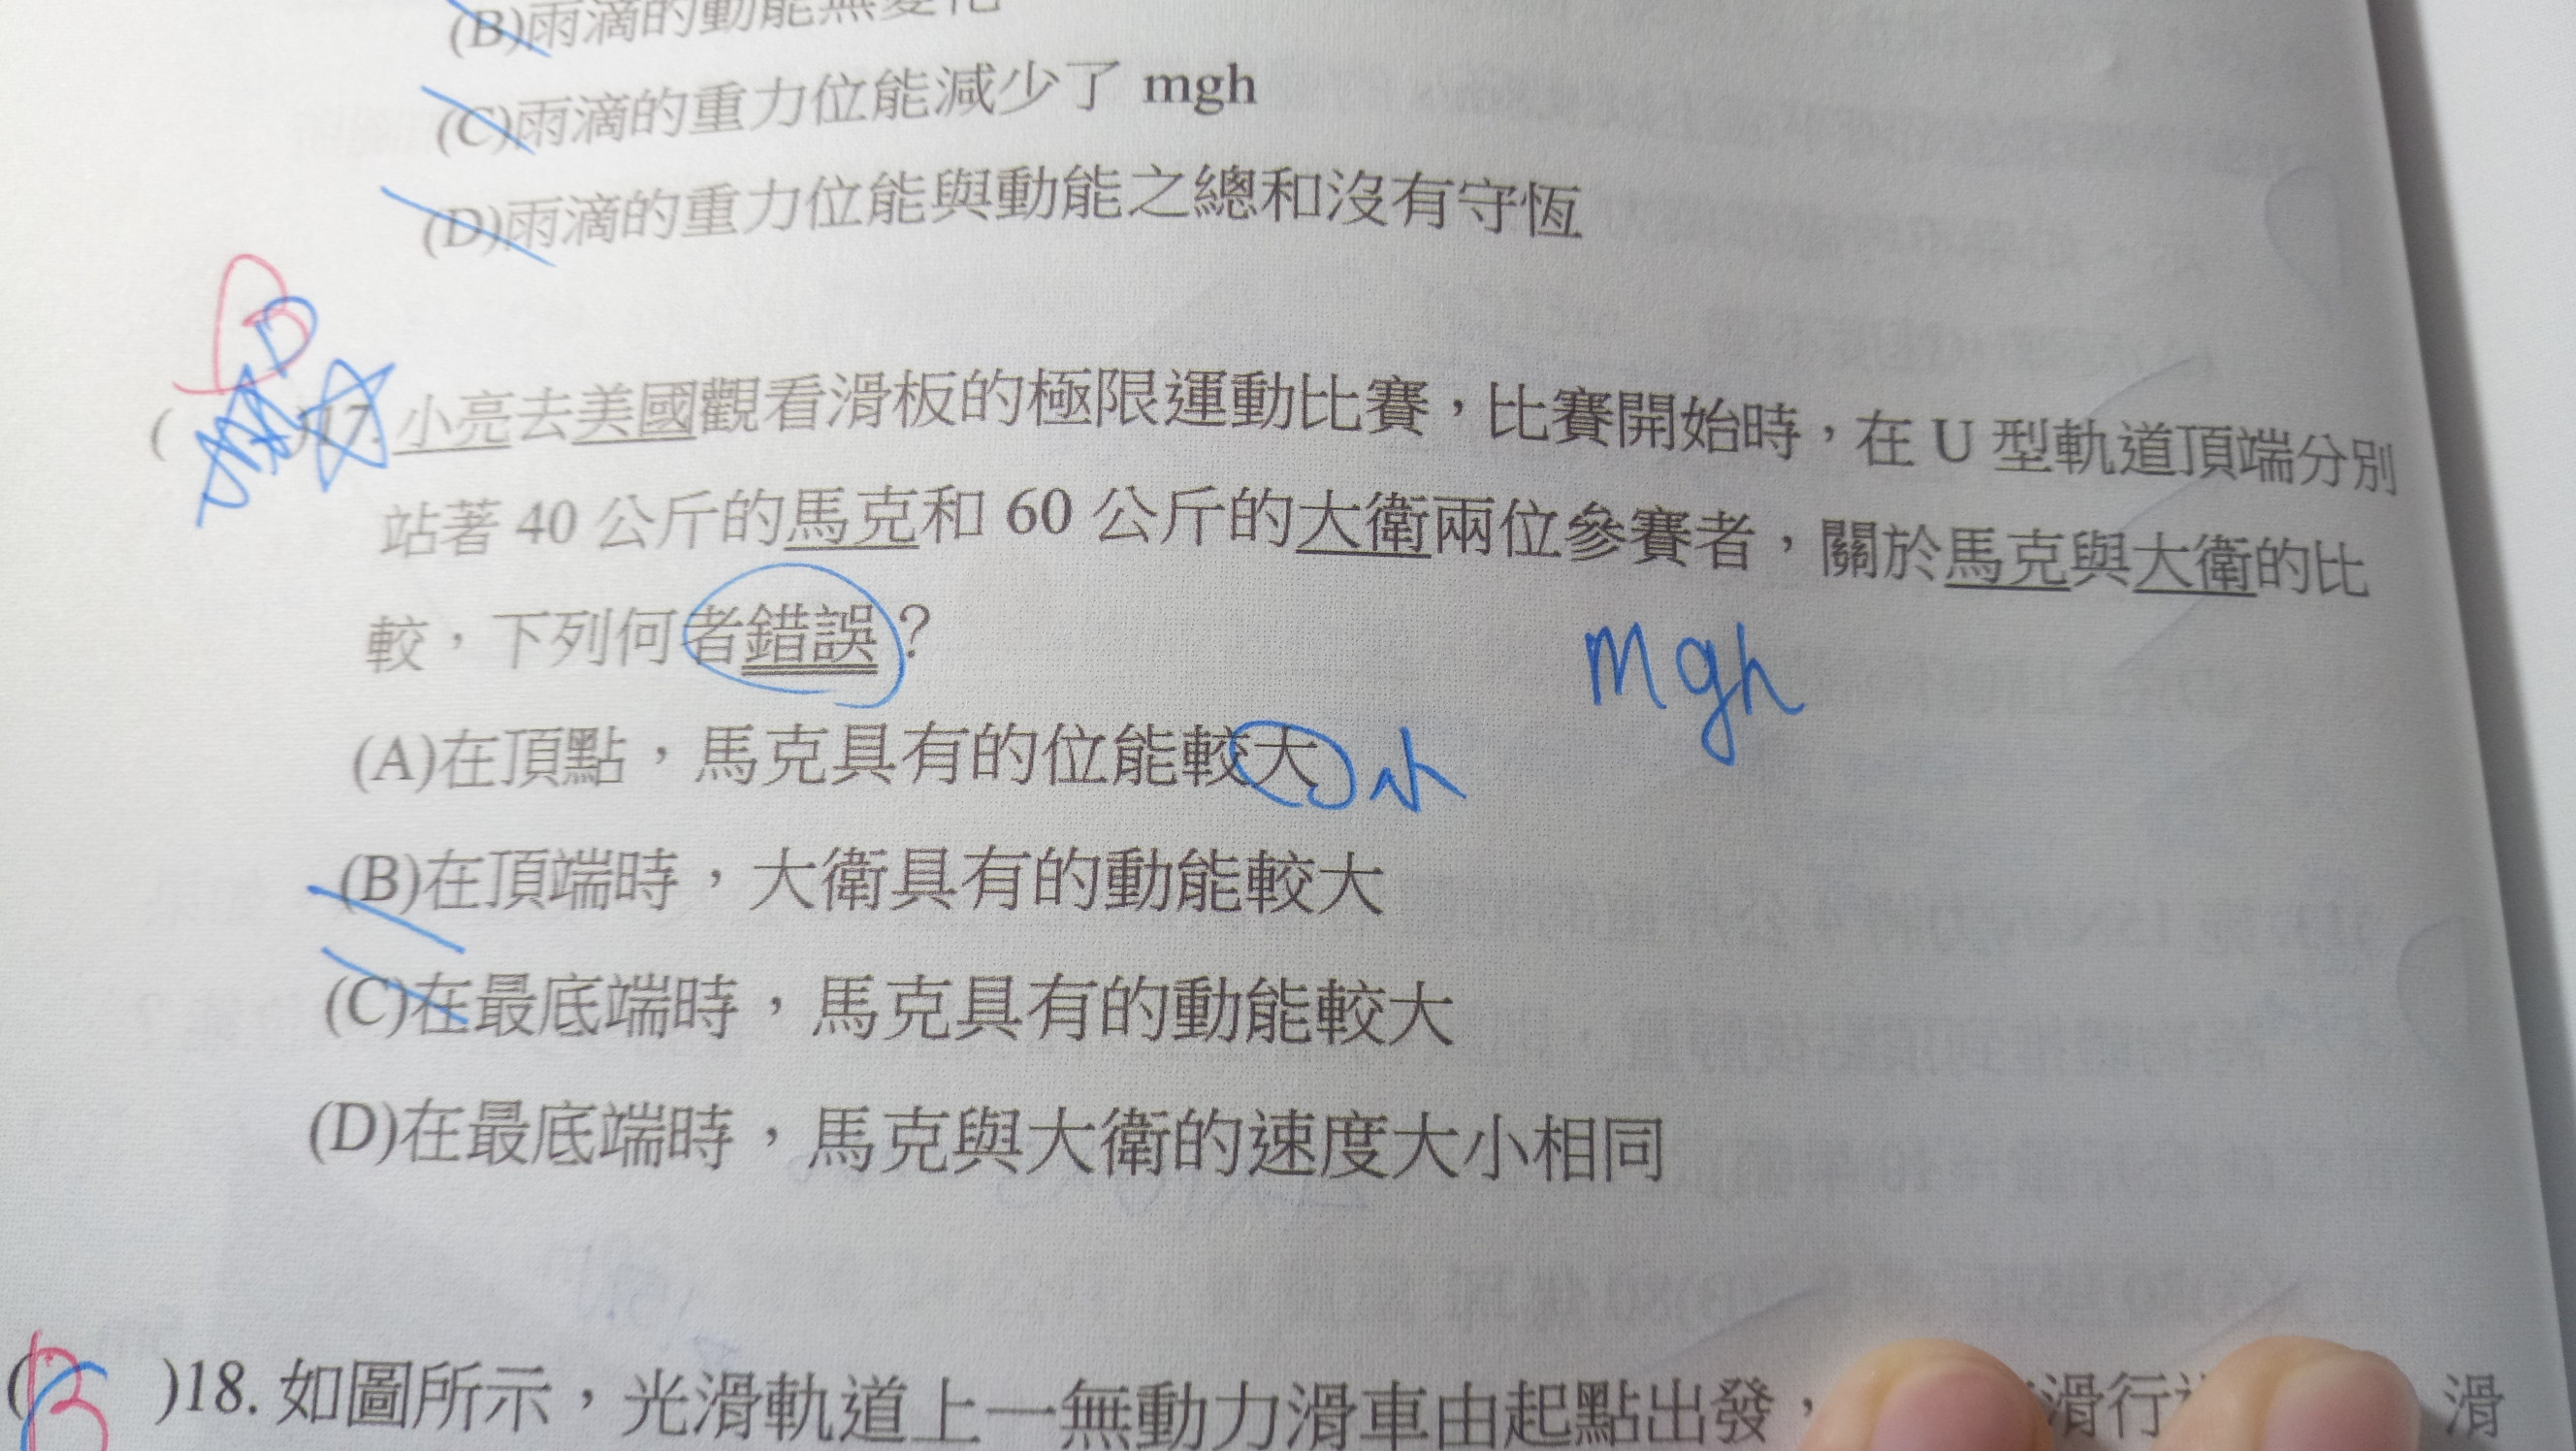 (B)雨滴的動能無變化
(C)雨滴的重力位能減少了 mgh
(D)雨滴的重力位能與動能之總和沒有守恆
D
( )17. 小亮去美國觀看滑板的極限運動比賽，比賽開始時，在 U 型軌道頂端分別
站著 40 公斤的馬克和 60 公斤的大衛兩位參賽者，關於馬克與大衛的比
較，下列何者錯誤？
mgh
(A)在頂點，馬克具有的位能較大 小
(B)在頂端時，大衛具有的動能較大
(C)在最底端時，馬克具有的動能較大
(D)在最底端時，馬克與大衛的速度大小相同
(B )18. 如圖所示，光滑軌道上一無動力滑車由起點出發，滑行 滑